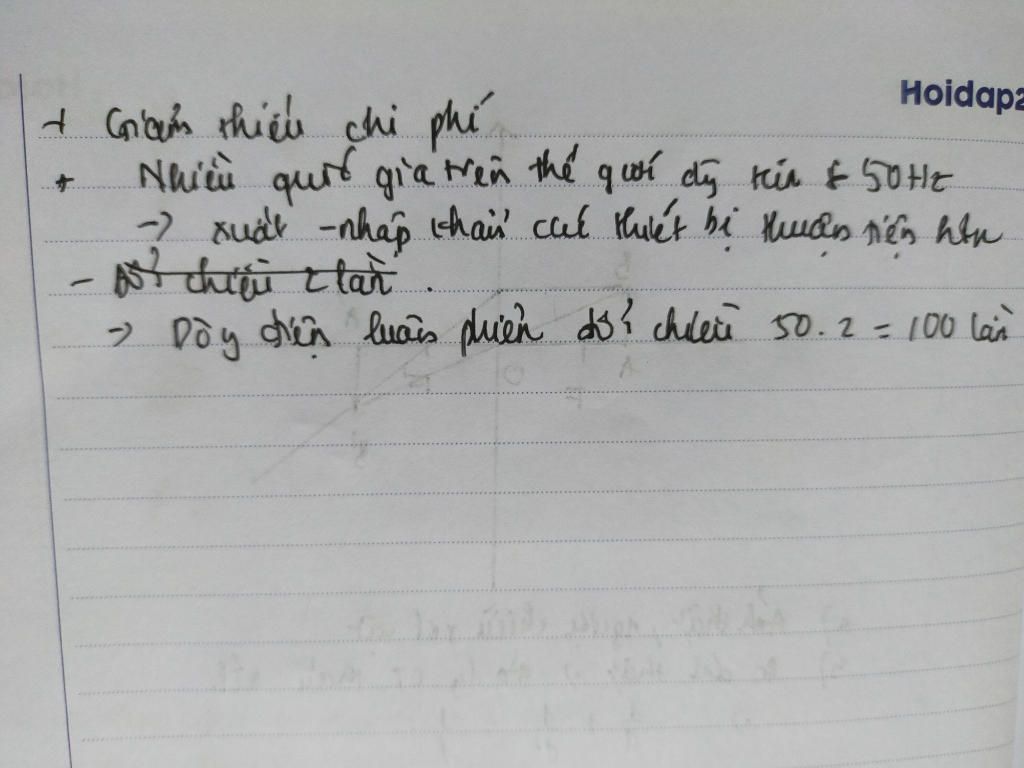 Hoidap2
+ Giảm thiểu chi phí
+ Nhiều quốc gia trên thế giới dùng f 50Hz
-> xuất - nhập khẩu các thiết bị thuận tiện hơn
- Đổi chiều 2 lần.
-> Dòng điện luân phiên đổi chiều 50.2 = 100 lần